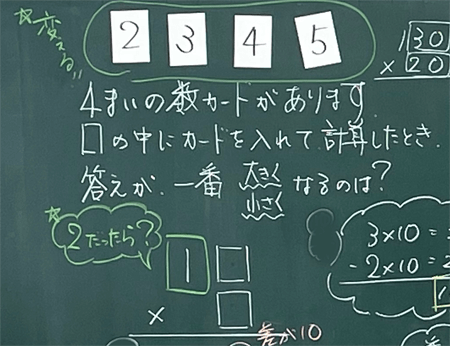 変える!!
2 3 4 5
130
×20
4まいの数カードがあります
□の中にカードを入れて計算したとき.
答えが.一番 大きく 小さく なるのは?
2だったら?
1□
× □
差が10
3×10=
-2×10=2
1